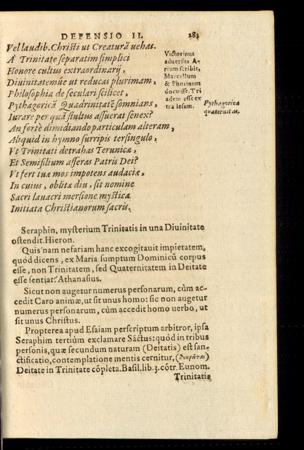 DEFENSIO II. 283
Vel laudib. Christi ut Creaturã uehas.
A Trinitate separatim simplici
Honore cultus extraordinarij,
Diuinitatemúe ut reducas plurimam,
Philosophia de seculari scilicet,
Pythagoricã Quadrinitatẽ somnians,
Iurare per quã stultus assueras senex?
An fortè dimidiando particulam alteram,
Abquid in hymno surripis tersingulo,
Vt Trinitati detrahas
Et Semissium asseras Patris Dei?
Vt fert tua mos impotens audaciæ,
In cuius, oblita diu, sit nomine
Sacri lauacri mersione mystica
Initiata Christianorum sacris.
Victorinus
aduersus A-
rium scribit,
Marcellum
& Photinum
docuisse Tri
adem esse ex
tra Iesum.
Pythagorica
quaternitas.
Seraphin, mysterium Trinitatis in una Diuinitate
ostendit. Hieron.
Quis nam nefariam hanc excogitauit impietatem,
quod dicens, ex Maria sumptum Dominicũ corpus
esse, non Trinitatem, sed Quaternitatem in Deitate
esse sentiat? Athanasius.
Sicut non augetur numerus personarum, cùm ac-
cedit Caro animæ, ut sit unus homo: sic non augetur
numerus personarum, cùm accedit homo uerbo, ut
sit unus Christus.
Propterea apud Esaiam perscriptum arbitror, ipsa
Seraphim tertiùm exclamare Sãctus: quòd in tribus
personis, quæ secundum naturam (Deitatis) est san-
ctificatio, contemplatione mentis cernitur,
Deitate in Trinitate cõpleta. Basil. lib. 3. cõtr. Eunom.
Trinitatis